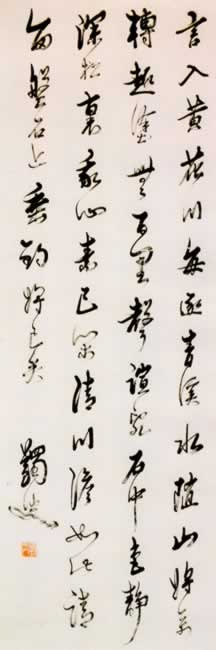 言入黄花川每逐青溪水随山将万
轉趣塗無百里聲諠亂石中色静
深松裏我心素已閑清川澹如此請
留盤石上垂釣将已矣